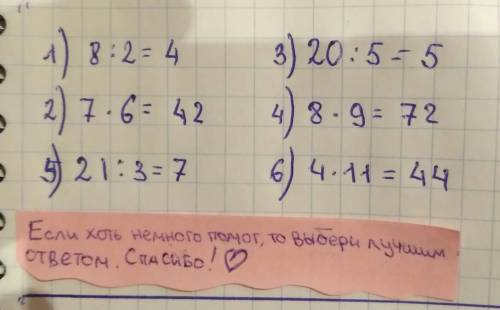 1) 8 : 2 = 4
3) 20 : 5 = 5
2) 7 · 6 = 42
4) 8 · 9 = 72
5) 21 : 3 = 7
6) 4 · 11 = 44
Если хоть немного помог, то выбери лучшим
ответом. Спасибо! ♡